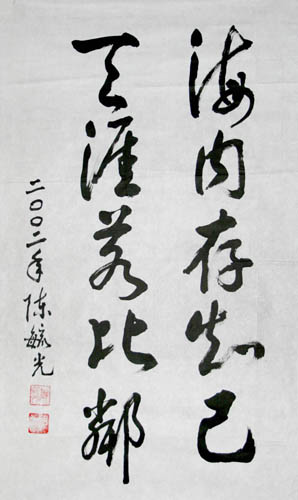 海内存知己
天涯若比鄰
二〇〇二年 陈毓光